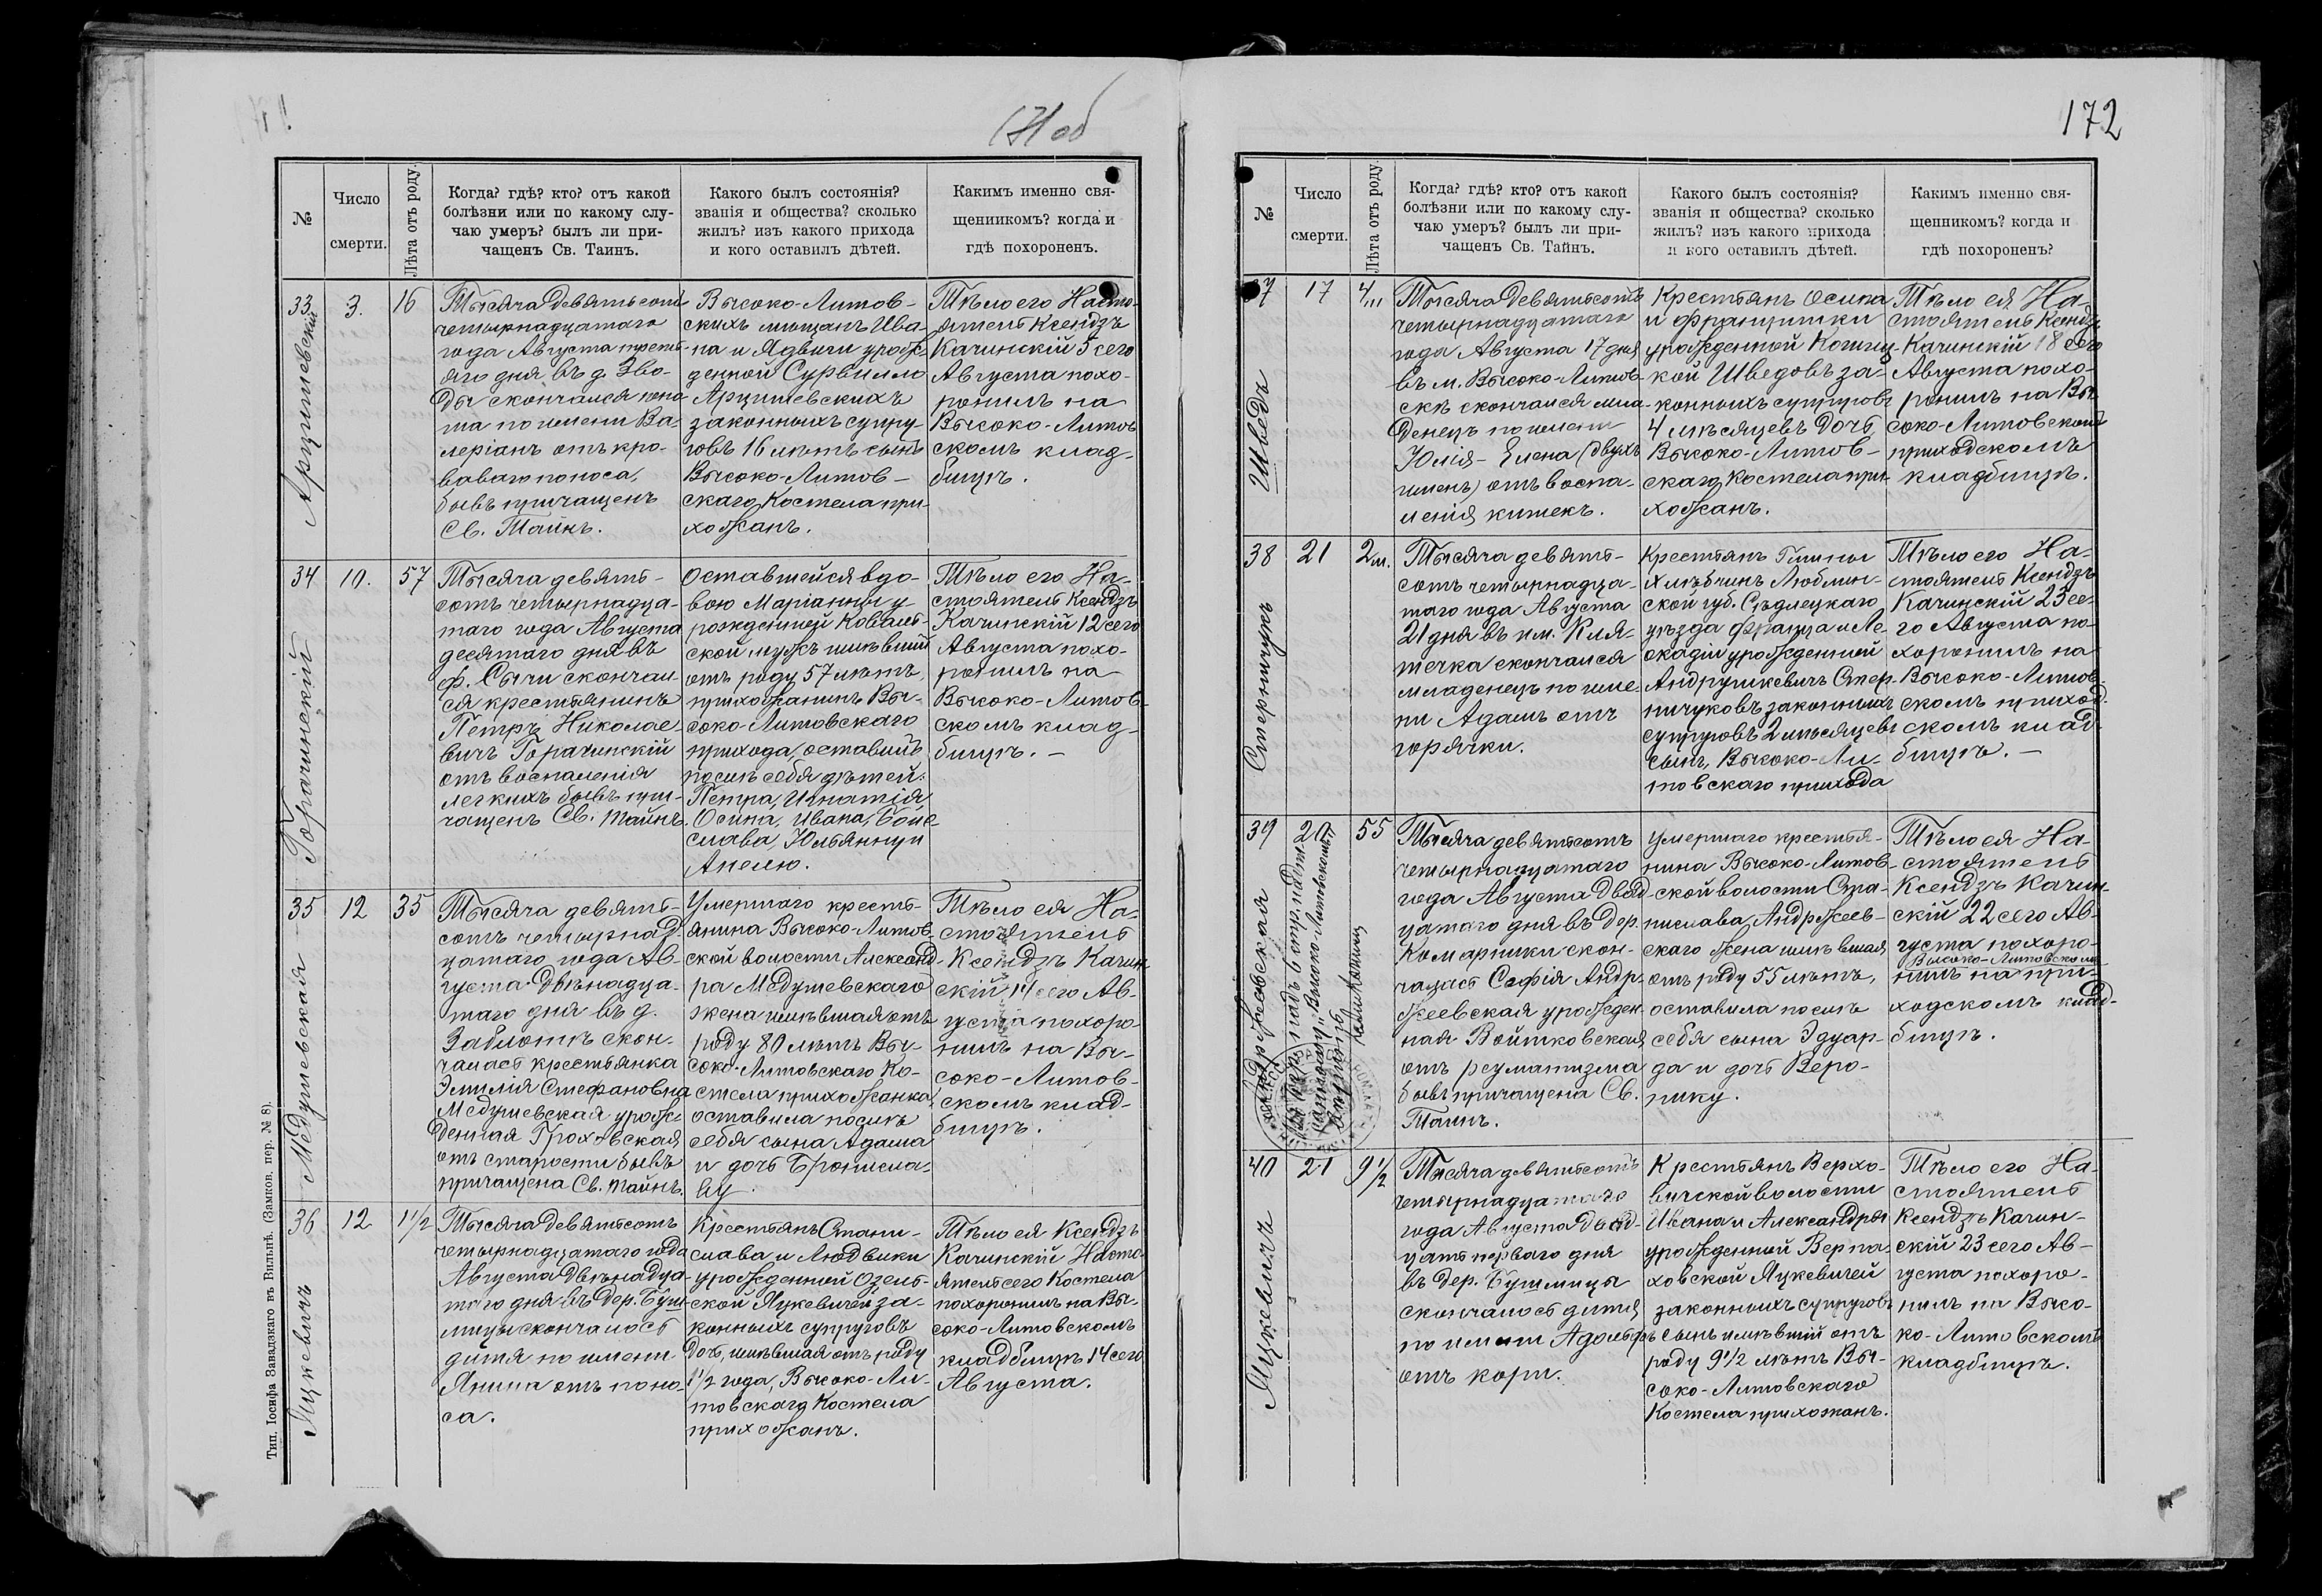 171 об
№
Число
смерти.
Лѣта отъ роду.
Когда? гдѣ? кто? отъ какой
болѣзни или по какому слу-
чаю умеръ? былъ ли при-
чащенъ Св. Таинъ.
Какого былъ состоянія?
званія и общества? сколько
жилъ? изъ какого прихода
и кого оставилъ дѣтей.
Какимъ именно свя-
щенникомъ? когда и
гдѣ похороненъ.
33
Арцишевскій
3.
16
Тысяча девятьсотъ
четырнадцатаго
года Августа треть-
яго дня въ д. Зво-
ды скончался
по имени Ва-
леріанъ отъ кро-
ваваго поноса,
бывъ причащенъ
Св. Тайнъ.
Высоко-Литов-
скихъ мѣщанъ Ива-
на и Ядвиги урож-
денной Сурвилло
Арцишевскихъ
законныхъ супру-
говъ 16 лѣтъ сынъ
Высоко-Литов-
скаго Костела при-
хожанъ.
Тѣло его Насто-
ятель Ксендзъ
Качинскій 5 сего
Августа похо-
ронилъ на
Высоко-Литов
скомъ клад-
бищѣ.
34
Горачинскій
10.
57
Тысяча девять-
сотъ четырнадца-
таго года Августа
десятаго дня въ
ф. Сычи скончал
ся крестьянинъ
Петръ Николае-
вичъ Горачинскій
отъ воспаленія
легкихъ бывъ при-
чащенъ Св. Тайнъ.
Оставшейся вдо-
вою Маріанны у
рожденной Коваль-
ской мужъ имѣвшій
отъ роду 57 лѣтъ,
прихожанинъ Вы-
соко-Литовскаго
прихода, оставивъ
послѣ себя дѣтей:
Петра, Игнатія,
Осипа, Ивана, Боле-
слава, Юльянну и
Анелю.
Тѣло его На-
стоятель Ксендзъ
Качинскій 12 сего
Августа похо-
ронилъ на
Высоко-Литов-
скомъ клад-
бищѣ. —
35
Медушевская
12
35
Тысяча девять-
сотъ четырнад-
цатаго года Ав-
густа двѣнадца-
таго дня въ д.
Заблотѣ скон-
чалась крестьянка
Эмилія Стефановна
Медушевская урож
денная Гроховская
отъ старости бывъ
причащена Св. Тайнъ.
Умершаго кресть-
янина Высоко-Литов-
ской волости Александ-
ра Медушевскаго
жена имѣвшая отъ
роду 80 лѣтъ Вы-
соко-Литовскаго Ко-
стела прихожанка,
оставила послѣ
себя сына Адама
и дочь Брониcла-
ву.
Тѣло ея На-
стоятель
Ксендзъ Качин
скій 14 сего Ав-
густа похоро-
нилъ на Вы-
соко-Литов-
скомъ клад-
бищѣ.
36
Яцкевичъ
12
1 1/2
Тысяча девятьсотъ
четырнадцатаго года
Августа двѣнадца-
таго дня въ дер. Буш-
мицы скончалось
дитя по имени
Янина отъ поно-
са.
Крестьянъ Стани-
слава и Людвики
урожденной Озель-
ской Яцкевичей за-
конныхъ супруговъ
дочь, имѣвшая отъ роду
1 1/2 года, Высоко-Ли-
товскаго Костела
прихожанъ.
Тѣло ея Ксендзъ
Качинскій Насто-
ятель сего Костела
похоронилъ на Вы-
соко-Литовскомъ
кладбищѣ 14 сего
Августа.
Тип. Іосифа Завадзкаго въ Вильнѣ. (Замков. пер. № 8).
172
№
Число
смерти.
Лѣта отъ роду.
Когда? гдѣ? кто? отъ какой
болѣзни или по какому слу-
чаю умеръ? былъ ли при-
чащенъ Св. Тайнъ.
Какого былъ состоянія?
званія и общества? сколько
жилъ? изъ какого прихода
и кого оставилъ дѣтей.
Какимъ именно свя-
щенникомъ? когда и
гдѣ похороненъ?
37
Шведъ
17
4 м
Тысяча девятьсотъ
четырнадцатаго
года Августа 17 дня
въ м. Высоко-Литов-
скѣ скончался мла-
денецъ по имени
Юлія-Елена (двухъ
именъ) отъ воспа-
ленія кишекъ.
Крестьянъ Осипа
и Францишки
урожденной
кой Шведовъ за-
конныхъ супруговъ
4 мѣсяцевъ дочь,
Высоко-Литов-
скаго Костела при-
хожанъ.
Тѣло ея На-
стоятель Ксендзъ
Качинскій 18 сего
Августа похо-
ронилъ на Вы-
соко-Литовскомъ
приходскомъ
кладбищѣ.
38
Стерничукъ
21
2 м.
Тысяча девять-
сотъ четырнадца-
таго года Августа
21 дня въ им. Кля-
течка скончался
младенецъ по име-
ни Адамъ отъ
горячки.
Крестьянъ Гмины
Хлѣбчинъ Люблин-
ской губ. Сѣдлецкаго
уѣзда Франца и Ле-
окадіи урожденной
Андрушкевичъ Стер-
ничуковъ законныхъ
супруговъ 2 мѣсяцевъ
сынъ, Высоко-Ли-
товскаго прихода
Тѣло его На-
стоятель Ксендзъ
Качинскій 23 се-
го Августа по-
хоронилъ на
Высоко-Литов-
скомъ приход-
скомъ клад-
бищѣ. —
39
Андржеевская
20
55
Тысяча девятьсотъ
четырнадцатаго
года Августа двад-
цатаго дня въ дер.
Комарники скон-
чалась Софія Андр-
жеевская урожден-
ная Войтковская
отъ ревматизма
бывъ причащена Св.
Таинъ.
Умершаго крестья-
нина Высоко-Литов-
ской волости Ста-
нислава Андржеев-
скаго жена имѣвшая
отъ роду 55 лѣтъ,
оставила послѣ
себя сына Эдуар-
да и дочь Веро-
нику.
Тѣло ея На-
стоятель
Ксендзъ Качин-
скій 22 сего Ав-
густа похоро-
Высоко-Литовскомъ
нилъ на при-
ходскомъ клад-
бищѣ.
40
Яцкевичъ
21
9 1/2
Тысяча девятьсотъ
четырнадцатаго
года Августа двад-
цать перваго дня
въ дер. Бушмицы
скончалось дитя
по имени Адольфъ
отъ кори.
Крестьянъ Верхо-
вичской волости
Ивана и Александры
урожденной Верпа-
ховской Яцкевичей
законныхъ супруговъ
сынъ имѣвшій отъ
роду 9 1/2 лѣтъ Вы-
соко-Литовскаго
Костела прихожанъ.
Тѣло его На-
стоятель
Ксендзъ Качин-
скій 23 сего Ав-
густа похоро-
нилъ на Высо-
ко-Литовскомъ
кладбищѣ.